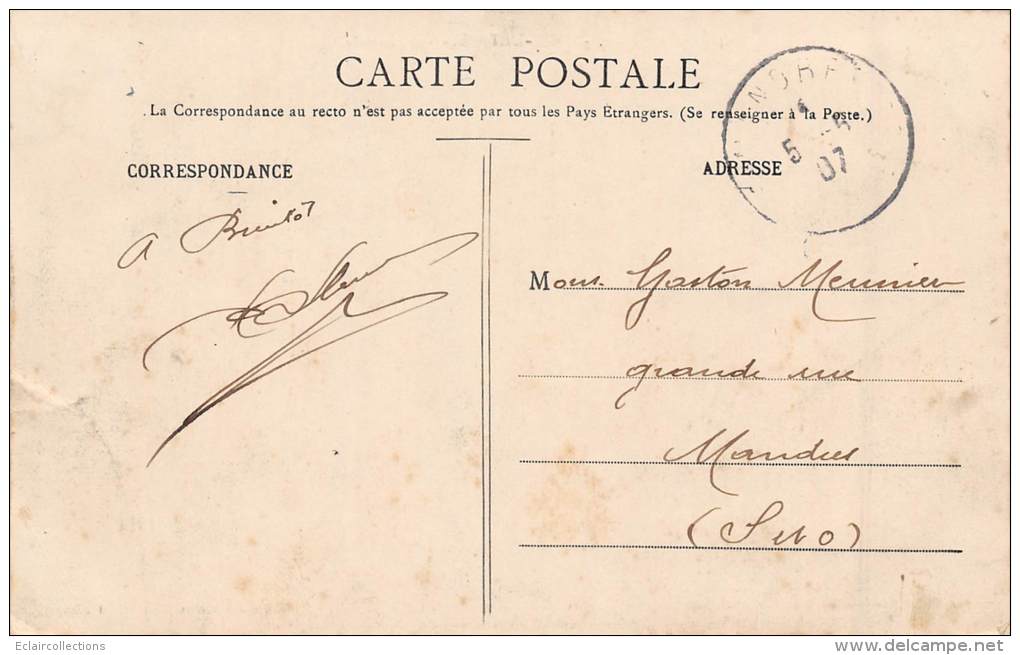 CARTE POSTALE
La Correspondance au recto n'est pas acceptée par tous les Pays Etrangers. (Se renseigner à la Poste.)
CORRESPONDANCE
ADRESSE
5
07
A Bientôt
Mons. Gaston Meunier
grande rue
Mandres
(S et O)
Eclaircollections
delcampe.net